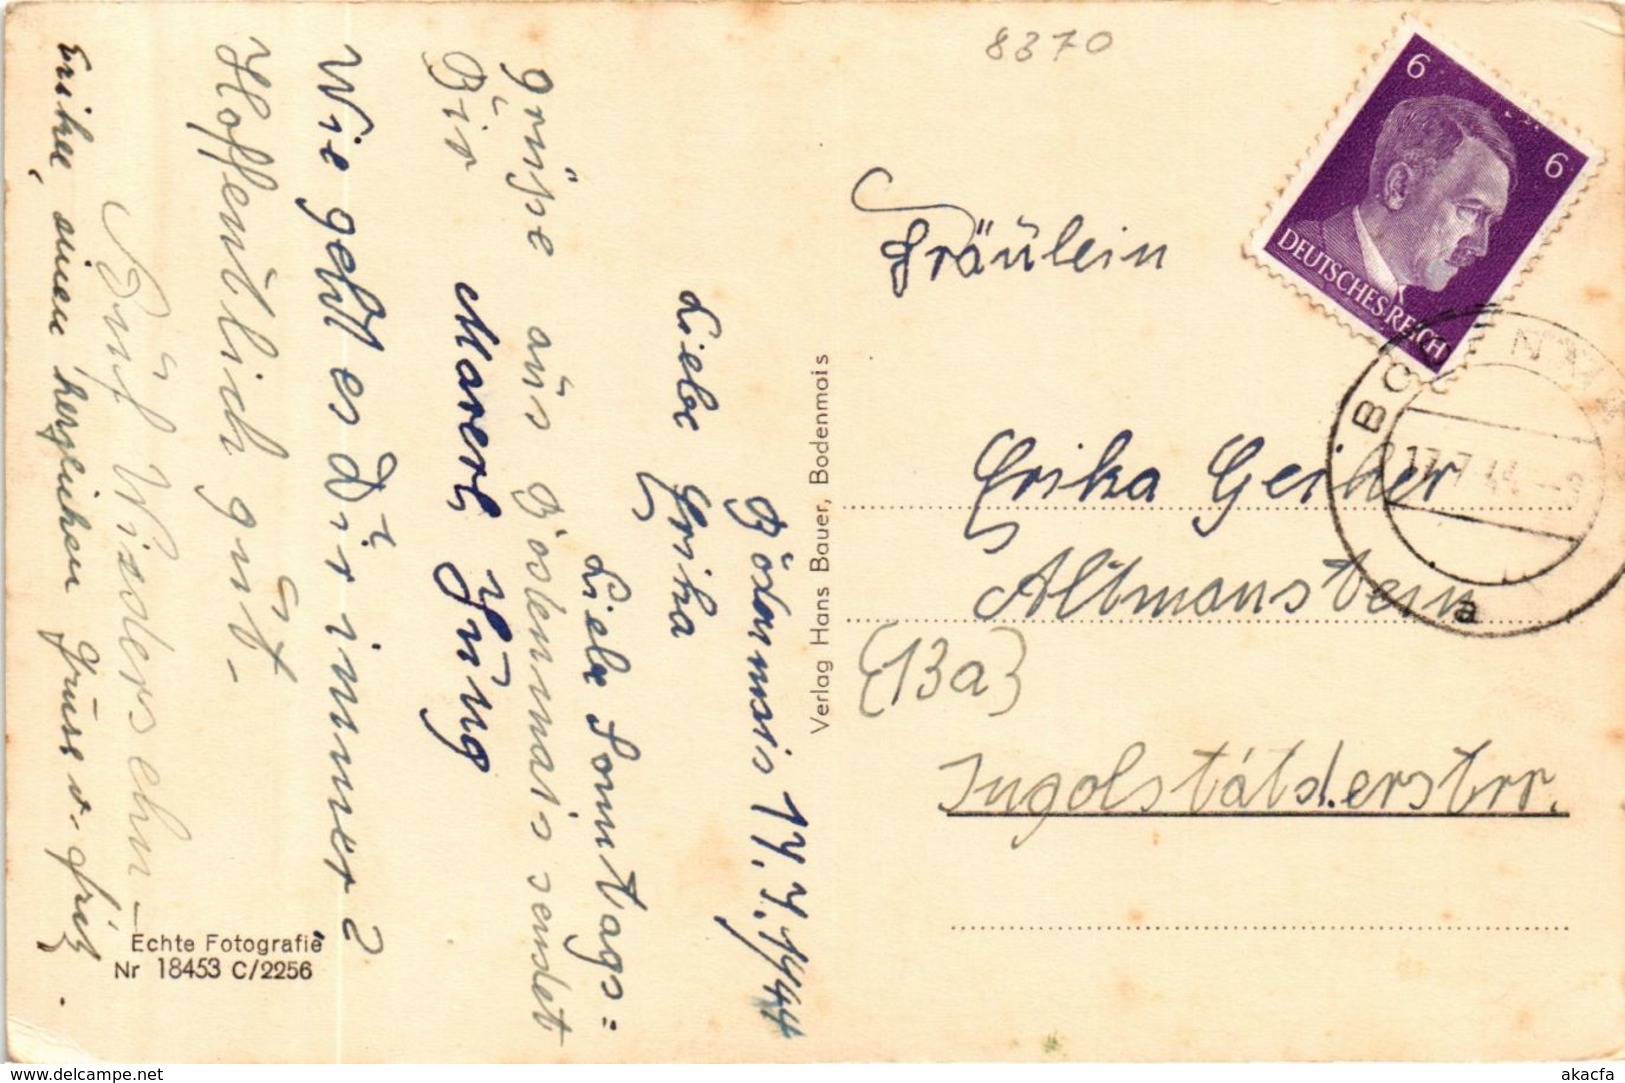 8370
6
6
DEUTSCHES REICH
BO
17.7.44
a
Fräulein
Erika Geiher
Altmanstein
(13a)
Ingolstätderstrr.
Verlag Hans Bauer, Bodenmais
Bodenmais 17.7.1944
Liebe Erika
Liebe Sonntags=
grüße aus Bodenmais sendet
Dir
Marerl Jung
Wie geht es Dir immer?
Hoffentlich gut.-
Auf Widersehn-
Erika, einen herzlichen Gruss v.
Echte Fotografie
Nr 18453 C/2256
www.delcampe.net
akacfa